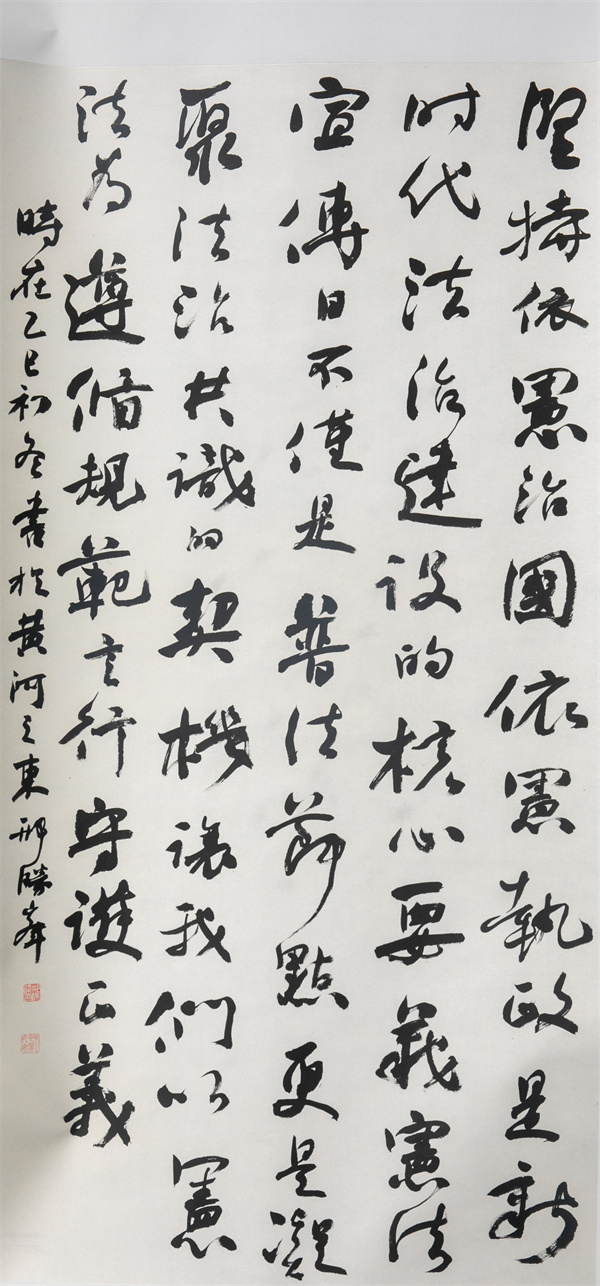 堅持依憲治國依憲執政是新
时代法治建设的核心要義憲法
宣傳日不僅是普法節點更是凝
聚法治共識的契機讓我們以憲
法为遵循規範言行守護正義
時在乙巳初冬書於黄河之東邢勝奪